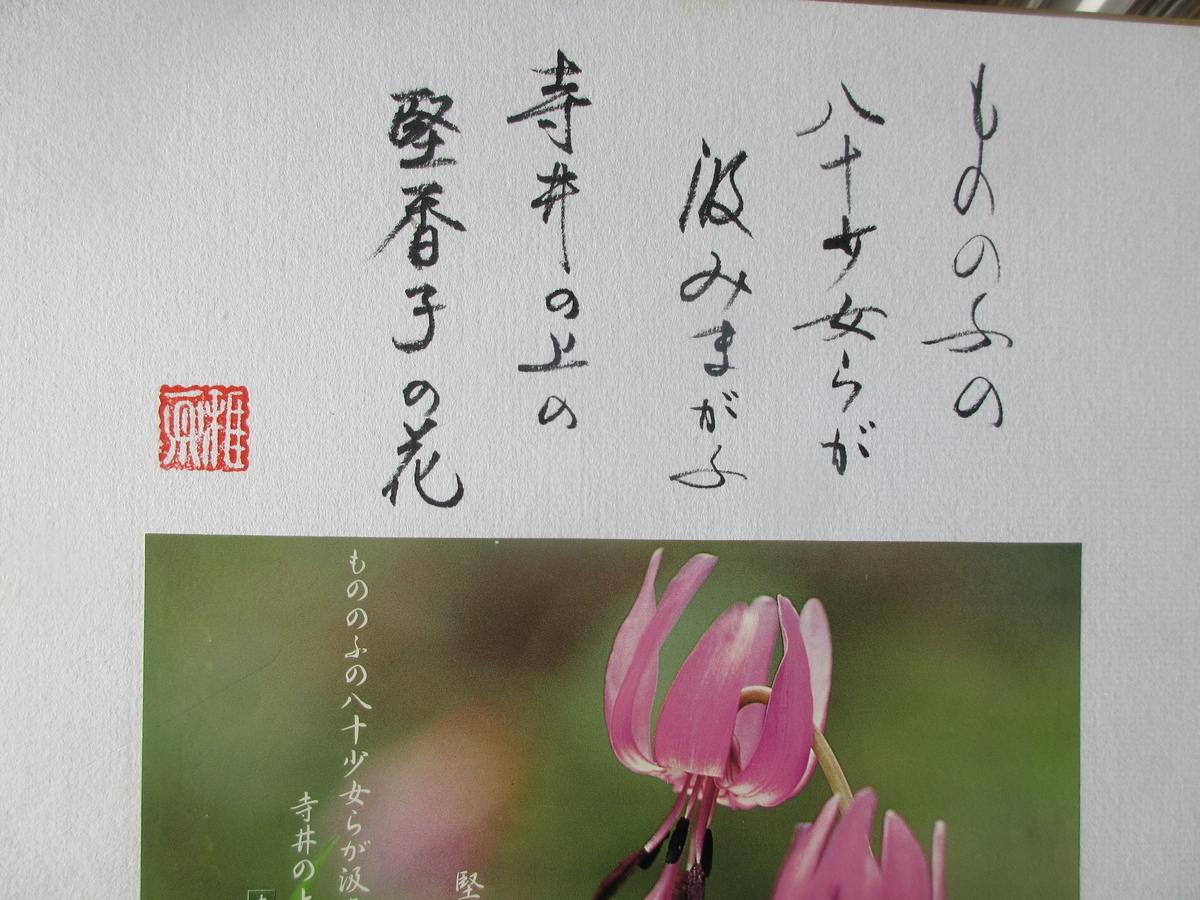 もののふの
八十少女らが
汲みまがふ
寺井の上の
堅香子の花
堅
もののふの八十少女らが汲
寺井の上